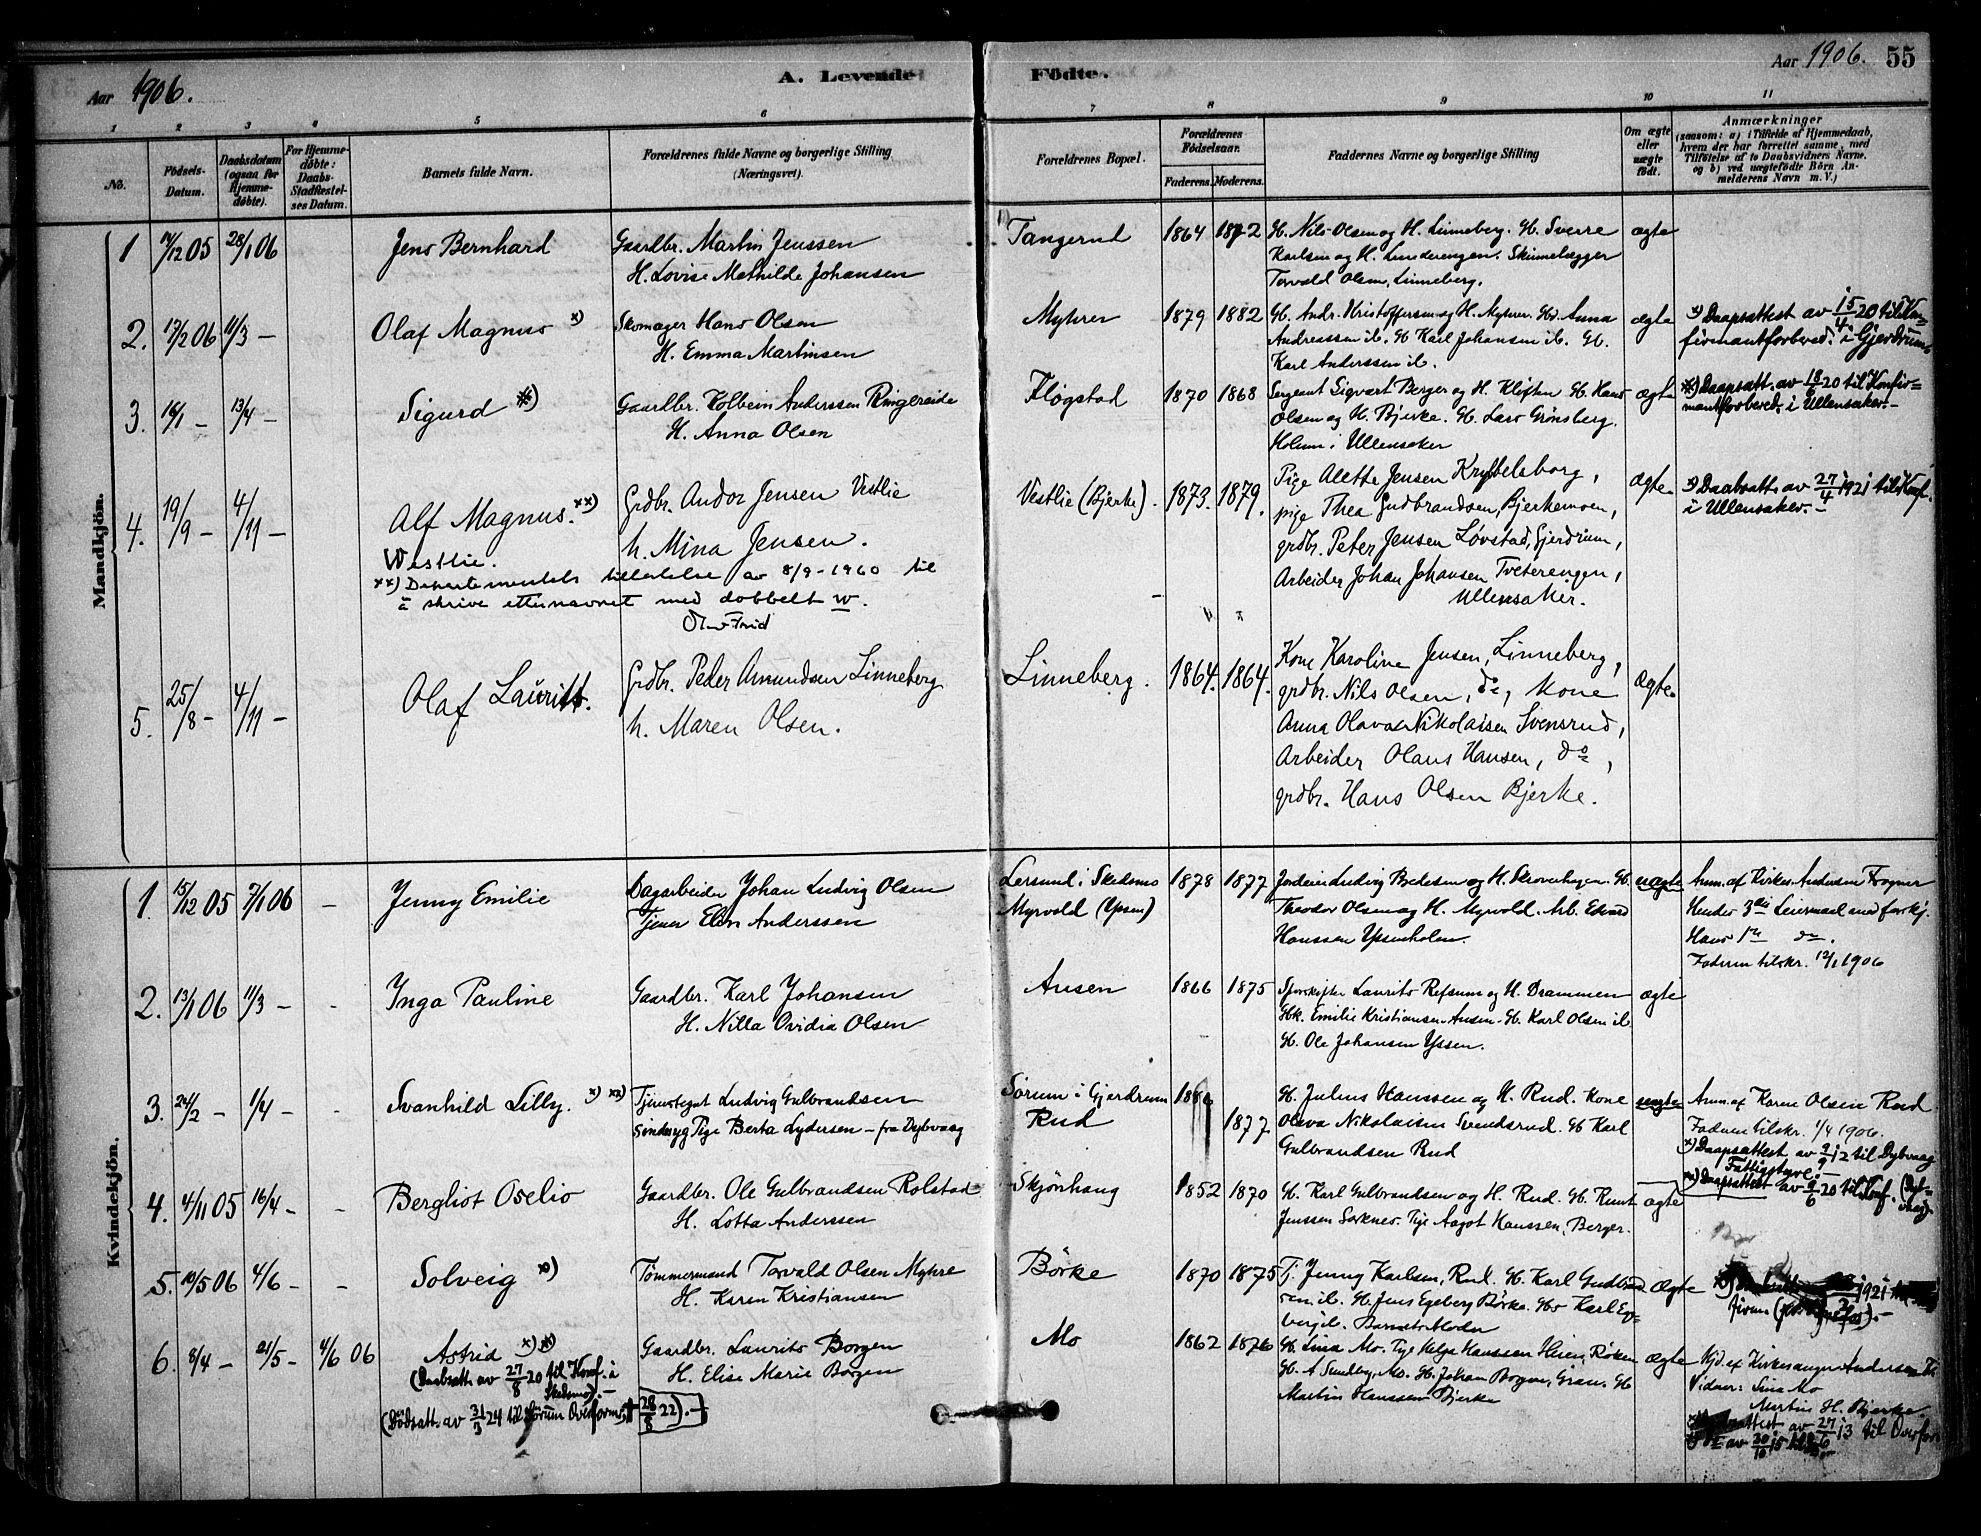 Aar 1906.
A. Levende Födte.
Aar 1906. 55
1 2 3 4 5 6 7 8 9 10 11
No.
Födsels-Datum.
Daabsdatum (ogsaa for Hjemme-döbte).
For Hjemme-döbte: Daabs-Stadfæstel-ses Datum.
Barnets fulde Navn.
Forældrenes fulde Navne og borgerlige Stilling (Næringsvei).
Forældrenes Bopæl.
Forældrenes Födselsaar.
Faderens. Moderens.
Faddernes Navne og borgerlige Stilling
Om ægte eller uægte födt.
Anmærkninger
(saasom: a) i Tilfælde af Hjemmedaab,
hvem der har forrettet samme, med
Tilföielse af to Daabsvidners Navne,
og b) ved uægtefödte Börn An-
melderens Navn m. V.)
Mandkjön.
1 /12 05 28/1 06 Jens Bernhard Gaardbr. Martin Jenssen Tangerud 1864 1872 G. Nils Olsen og H. Linneberg. G. Sverre ægte
H. Lovise Mathilde Johansen Karlsen og H. Linderengen. Skinnelægger
Torvald Olsen, Linneberg.
2. 17/2 06 11/3 — Olaf Magnus x) Skomager Hans Olsen Myhrer 1879 1882 G. Andr. Kristoffersen og H. Myhrer. Anna ægte x) Daapsattest av 15/4 20 til Kon-
H. Emma Martinsen Andreassen ib. G. Karl Johansen ib. G. firmantforbered. i Gjerdrum
Karl Anderssen ib.
3. 18/1 — 13/4 — Sigurd Gaardbr. Kolbein Anderssen Ringereide Fløgstad 1870 1868 Sergeant Sigvart Berger og H. Kløften G. Hans ægte Daapsatt. av 18/6 20 til Konfir-
H. Anna Olsen Olsen og H. Bjerke. G. Lars Grønsberg. mantforbered. i Ullensaker.
Holum i Ullensaker
4. 19/9 — 4/11 — Alf Magnus. xx) Grdbr. Andor Jensen Vestlie Vestlie (Bjerke). 1873. 1879. Pige Alette Jensen Krybbelsborg, ægte x) Daabsatt. av 27/4 1921 til Konf.
Westlie. h. Mina Jensen. pige Thea Gudbrandsen, Bjerkemoen, i Ullensaker.
grdbr. Peter Jensen Løvstad, Gjerdrum,
Arbeider Johan Johansen Tveterengen,
Ullensaker.
xx) Departementets tilladelse av 8/9-1960 til
å skrive etternavnet med dobbelt w.
5. 25/8 — 4/11 — Olaf Lauritz. Grdbr. Peder Amundsen Linneberg Linneberg. 1864. 1864. Kone Karoline Jensen, Linneberg, ægte
h. Maren Olsen. grdbr. Nils Olsen, do, Kone
Anna Olava Nikolaisen Svensrud,
Arbeider Olaus Hansen, do,
grdbr. Hans Olsen Bjerke.
Kvindekjön.
1. 15/12 05 7/1 06 — Jenny Emilie Dagarbeider Johan Ludvig Olsen Lersund i Skedsmo 1878 1877 Ludvig Pedersen og H. Skovenhagen. G. uægte Anm. af Kirkes. Andersen Frogner
Tjener Elen Anderssen Myrvold (Ypsen) Theodor Olsen og H. Myrvold. Arb. Edvard Hendes 3die Leiermaal med forskj.
Hanssen Yssenholm. Hans 1ste do.
Faderen tilskr. 12/1 1906
2. 13/1 06 11/3 — - Inga Pauline Gaardbr. Karl Johansen Ausen 1866 1875 Sporskifter Laurits Refsum og H. Drammen ægte
H. Nilla Ovidia Olsen Emilie Kristiansen Ausen. G. Karl Olsen ib
G. Ole Johansen Yssen.
3. 22/2 — 1/4 — - Svanhild Lilly. x) xx) Ludvig Gulbrandsen Sørum i Gjerdrum G. Julius Hanssen og H. Rud. Kone uægte Anm. af Karen Olsen Rud
Sindssyg Pige Berta Lydersen — fra Dybvaag Rud 1877 Olava Nikolaisen Svendsrud. G. Karl Faderen tilskr. 1/4 1906.
Gulbrandsen Rud x) Daapsattest av 2/9 12 til Dybvaag
Fattigstyre.
4. 4/11 05 16/4 — - Bergliot Oselio Gaardbr. Ole Gulbrandsen Rolstad Skjönhaug 1852 1870 G. Karl Gulbrandsen og H. Rud. G. Knut ægte xx) Daapsattest av 2/6 20 til Konf. (Dyb-vaag).
H. Lotta Anderssen Jenssen Sørknes. Pige Aagot Hanssen, Berger.
5. 10/5 06 4/6 — - Solveig x) Tömmermand Torvald Olsen Myhre Börke 1870 1875 Jenny Karlsen, Rud. G. Karl Gudbrand- ægte 1921
H. Karen Kristiansen sen ib. G. Jens Egeberg Börke. Karl Eg-
berg ib. Barnets Moder
6. 8/4 — 21/5 — 4/6 06 Astrid x) Gaardbr. Laurits Borgen Mo 1862 1876 G. Lina Mo. Pige Helga Hanssen Röken ægte Hjd. af Kirkesanger Andersen
(Daabsatt. av 27/8 20 til Konf. i Skedsmo). — H. Elise Marie Borgen G. A. Sundby, Mo. H. Johan Borgen, Gran. G. Vidner: Lina Mo
Martin Hanssen Bjerke Martin H. Bjerke
(Dödsatt. av 31/3 24 til Sörum Overform. 28/8 22). — av 27/6 13 til Overform
av 30/10 15